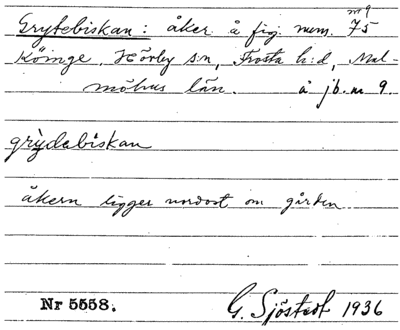 nr 9
Grytebiskan: åker å fig. num. 75
Köinge, Hörby s:n, Frosta h:d, Mal-
möhus län. å jb. nr 9.
grỳdabiskan
åkern ligger nordost om gården
Nr 5558. G. Sjöstedt 1936